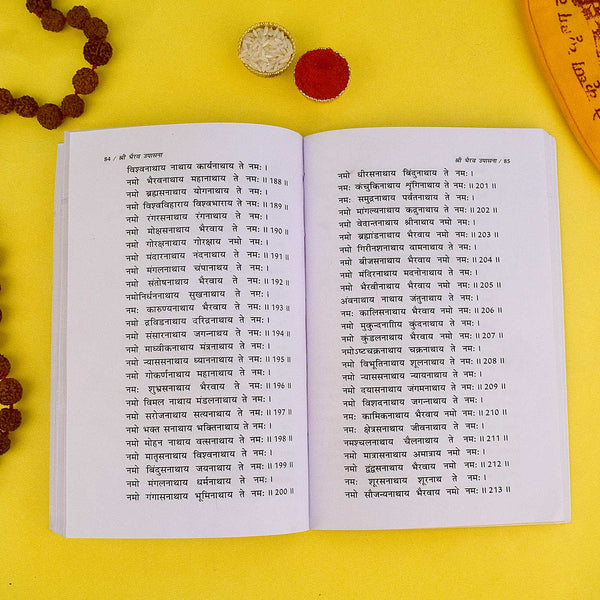 84 / श्री भैरव उपासना
विश्वनाथाय नाथाय कार्यनाथाय ते नमः ।
नमो भैरवनाथाय महानाथाय ते नमः ॥ 188 ॥
नमो ब्रह्मसनाथाय योगनाथाय ते नमः ।
नमो विश्वविहाराय विश्वभाराय ते नमः ॥ 189 ॥
नमो रंगरसनाथाय रंगनाथाय ते नमः ।
नमो मोक्षसनाथाय भैरवाय ते नमः ॥ 190 ॥
नमो गोरक्षनाथाय गोरक्षाय नमो नमः ।
नमो मंदारनाथाय नंदनाथाय ते नमः ॥ 191 ॥
नमो मंगलनाथाय चंपानाथाय ते नमः ।
नमो संतोषनाथाय भैरवाय ते नमः ॥ 192 ॥
नमोनिर्धननाथाय सुखनाथाय ते नमः ।
नमः कारुण्यनाथाय भैरवाय ते नमः ॥ 193 ॥
नमो द्रविडनाथाय दरिद्रनाथाय ते नमः ।
नमो संसारनाथाय जगन्नाथाय ते नमः ॥ 194 ॥
नमो माध्वीकनाथाय मंत्रनाथाय ते नमः ।
नमो न्याससनाथाय ध्याननाथाय ते नमः ॥ 195 ॥
नमो गोकर्णनाथाय महानाथाय ते नमः ।
नमः शुभ्रसनाथाय भैरवाय ते नमः ॥ 196 ॥
नमो विमल नाथाय मंडलनाथाय ते नमः ।
नमो सरोजनाथाय सत्यनाथाय ते नमः ॥ 197 ॥
नमो भक्त सनाथाय भक्तिनाथाय ते नमः ।
नमो मोहन नाथाय वत्सनाथाय ते नमः ॥ 198 ॥
नमो मातृसनाथाय विश्वनाथाय ते नमः ।
नमो बिंदुसनाथाय जयनाथाय ते नमः ॥ 199 ॥
नमो मंगलनाथाय धर्मनाथाय ते नमः ।
नमो गंगासनाथाय भूमिनाथाय ते नमः ॥ 200 ॥
श्री भैरव उपासना / 85
नमो धीरसनाथाय बिंदुनाथाय ते नमः ।
नमः कंचुकिनाथाय शृंगिनाथाय ते नमः ॥ 201 ॥
नमः समुद्रनाथाय पर्वतनाथाय ते नमः ।
नमो मांगल्यनाथाय कद्रुनाथाय ते नमः ॥ 202 ॥
नमो वेदान्तनाथाय श्रीनाथाय नमो नमः ।
नमो ब्रह्मांडनाथाय भैरवाय नमो नमः ॥ 203 ॥
नमो गिरीनशनाथाय वामनाथाय ते नमः ।
नमो बीजसनाथाय भैरवाय नमो नमः ॥ 204 ॥
नमो मंदिरनाथाय मदनोनाथाय ते नमः ।
नमो भैरवीनाथाय भैरवाय नमो नमः ॥ 205 ॥
अंबानाथाय नाथाय जंतुनाथाय ते नमः ।
नमः कालिसनाथाय भैरवाय नमो नमः ॥ 206 ॥
नमो मुकुन्दनाथाय कुंदनाथाय ते नमः ।
नमो कुंडलनाथाय भैरवाय नमो नमः ॥ 207 ॥
नमोऽष्टचक्रनाथाय चक्रनाथाय ते नमः ।
नमो विभूतिनाथाय शूलनाथाय ते नमः ॥ 208 ॥
नमो न्याससनाथाय न्यायनाथाय ते नमः ।
नमो दयासनाथाय जंगमनाथाय ते नमः ॥ 209 ॥
नमो विशदनाथाय जगन्नाथाय ते नमः ।
नमः कामिकनाथाय भैरवाय नमो नमः ॥ 210 ॥
नमः क्षेत्रसनाथाय जीवनाथाय ते नमः ।
नमश्चलनाथाय चैलनाथाय ते नमः ॥ 211 ॥
नमो मात्रासनाथाय अमात्राय नमो नमः ।
नमो द्वंद्वसनाथाय भैरवाय नमो नमः ॥ 212 ॥
नमः शूरसनाथाय शूरनाथ ते नमः ।
नमो सौजन्यनाथाय भैरवाय नमो नमः ॥ 213 ॥